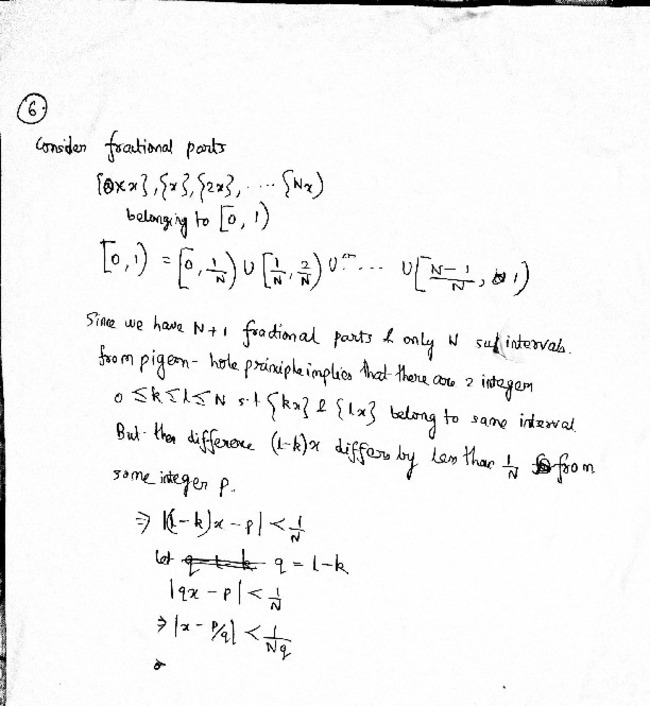 6.
Consider fractional parts
{0×x}, {x}, {2x}, .... {Nx)
belonging to [0, 1)
[0,1) = [0, 1/N) ∪ [1/N, 2/N) ∪ .... ∪ [N-1/N, 1)
Since we have N+1 fractional parts & only N sub intervals.
from pigeon-hole principle implies that there are 2 integers
0 ≤ k ≤ l ≤ N s.t {kx} & {lx} belong to same interval.
But the difference (l-k)x differs by less than 1/N from
some integer p.
⇒ |(l-k)x - p| < 1/N
let q = l-k
|qx - p| < 1/N
⇒ |x - p/q| < 1/Nq